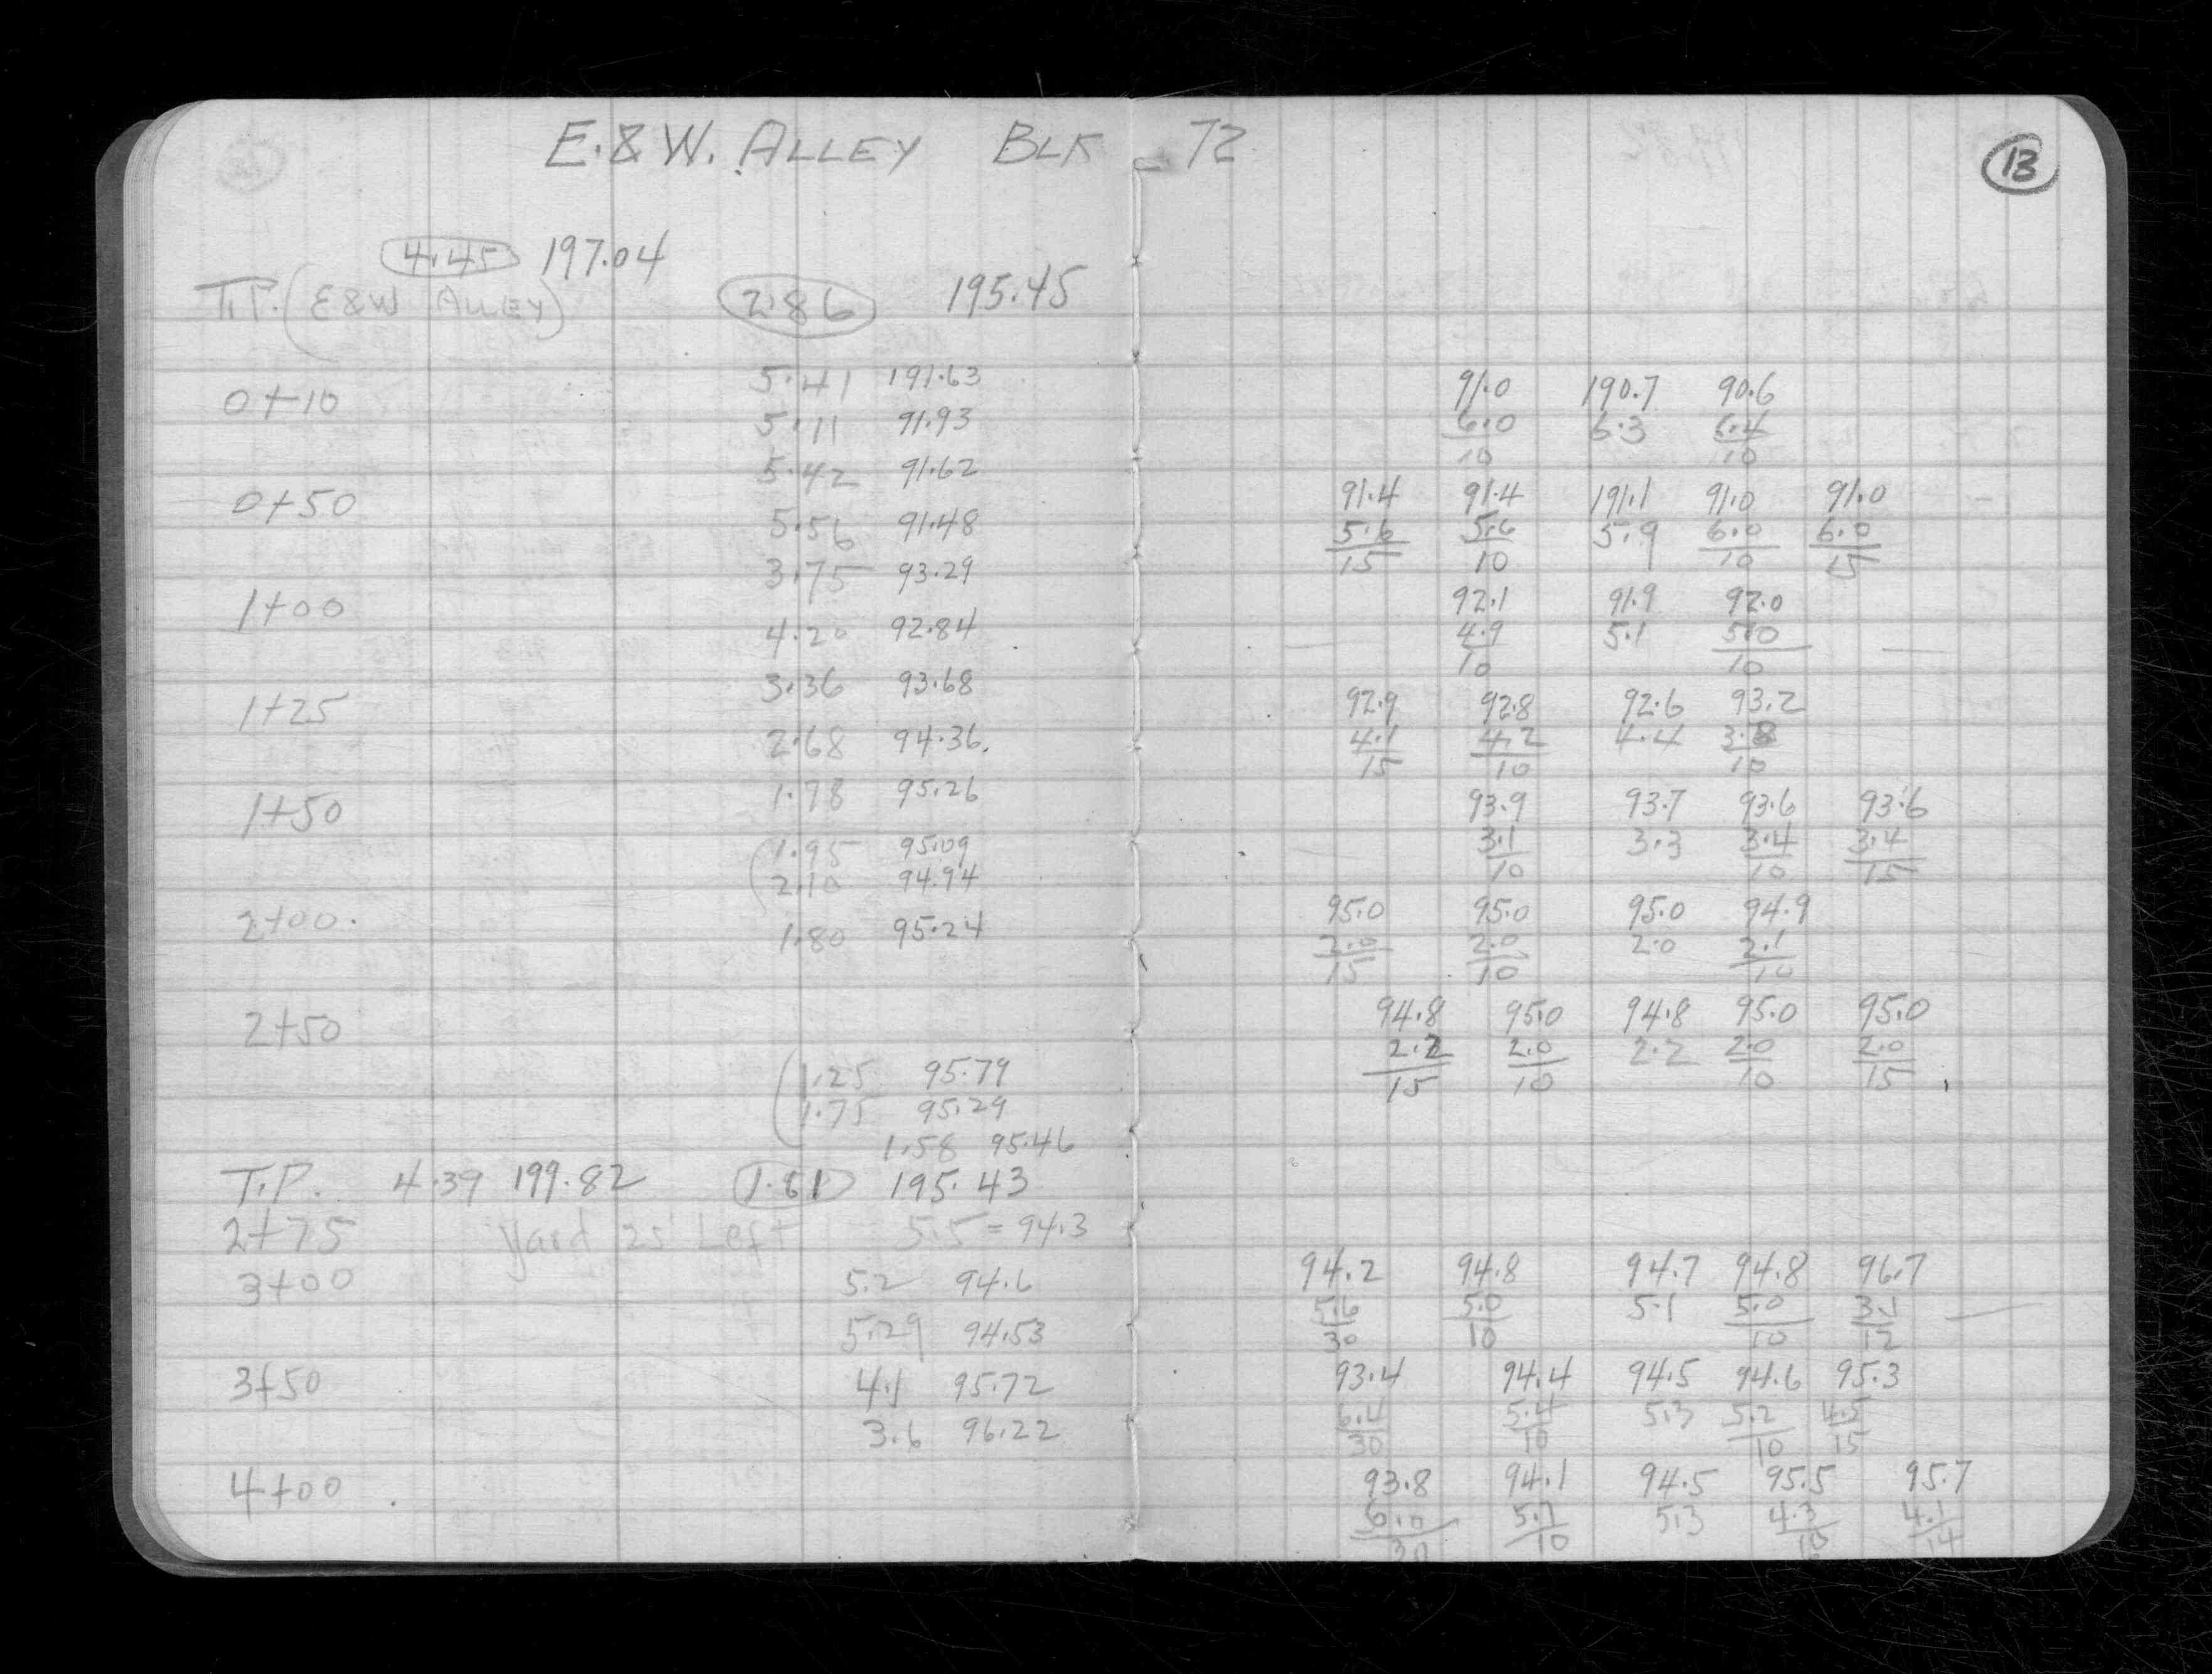 E. & W. ALLEY BLK - 72
13
4.45 197.04
T.P. (E & W ALLEY) 2.86 195.45
5.41 191.63
0+10 91.0 190.7 90.6
5.11 91.93 6.0 6.3 6.4
5.42 91.62 10 10
0+50 91.4 91.4 191.1 91.0 91.0
5.56 91.48 5.6 5.6 5.9 6.0 6.0
3.75 93.29 15 10 10 15
1+00 92.1 91.9 92.0
4.20 92.84 4.9 5.1 5.0
10 10
3.36 93.68
1+25 92.9 92.8 92.6 93.2
2.68 94.36. 4.1 4.2 4.4 3.8
15 10 10
1.78 95.26
1+50 93.9 93.7 93.6 93.6
1.95 95.09 3.1 3.3 3.4 3.4
2.10 94.94 10 10 15
2+00. 95.0 95.0 95.0 94.9
1.80 95.24 2.0 2.0 2.0 2.1
15 10 10
2+50 94.8 95.0 94.8 95.0 95.0
2.2 2.0 2.2 2.0 2.0
1.25 95.79 15 10 10 15
1.75 95.29
1.58 95.46
T.P. 4.39 199.82 1.61 195.43
2+75 Yard 25' Left 5.5 = 94.3
3+00 5.2 94.6 94.2 94.8 94.7 94.8 96.7
5.6 5.0 5.1 5.0 3.1
5.29 94.53 30 10 10 12
3+50 4.1 95.72 93.4 94.4 94.5 94.6 95.3
3.6 96.22 6.4 5.4 5.3 5.2 4.5
30 10 10 15
4+00 93.8 94.1 94.5 95.5 95.7
6.0 5.7 5.3 4.3 4.1
30 10 10 14